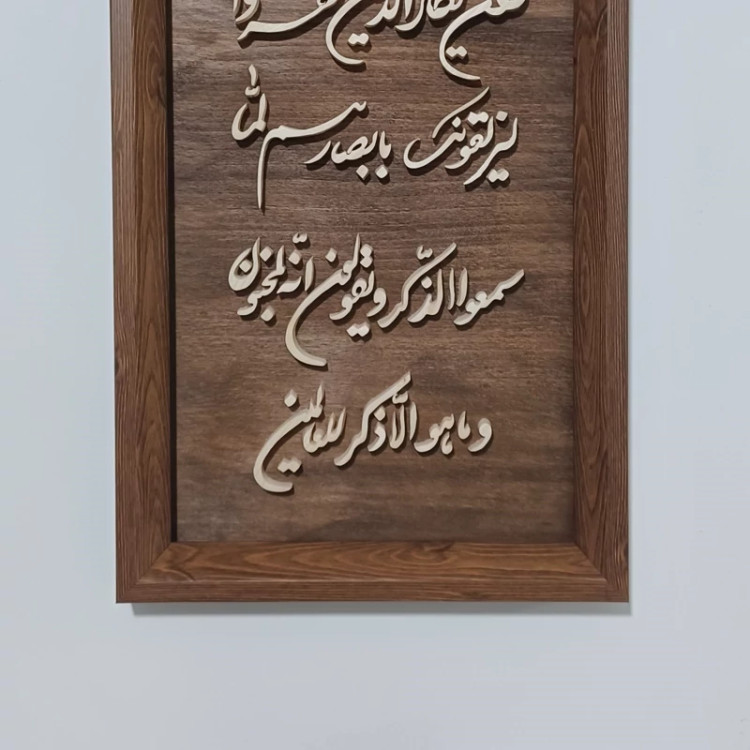 وان یکاد الذین کفروا
لیزلقونک بابصارهم لمّا
سمعوا الذّکر و یقولون انّه لمجنون
و ما هو الّا ذکر للعالمین